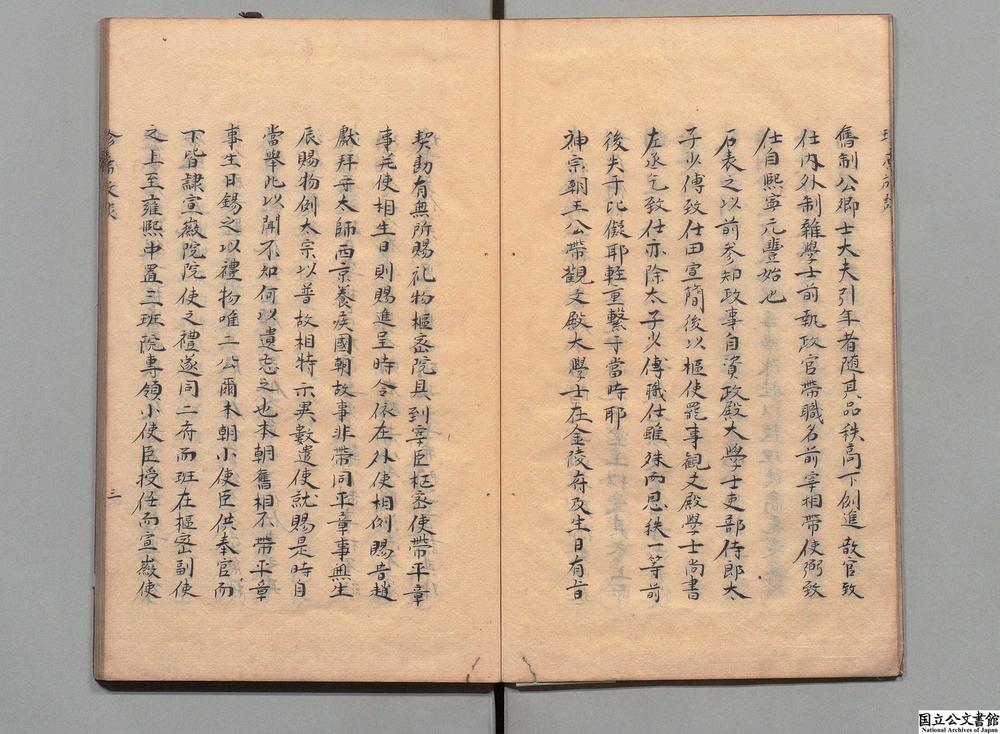 舊制公卿士大夫引年者随其品秩高下例進散官致
仕内外制雜學士前執政官帶職名前宰相帶使弼致
仕自熈寧元豊始也
石表之以前参知政事自資政殿大學士吏部侍郎太
子少傅致仕田宣簡後以樞使罷事観文殿學士尚書
左丞乞致仕亦除太子少傅職仕雖殊而恩秩一等前
後失于比儗耶軽重繋于當時耶
神宗朝王公帶觀文殿大學士在金陵府及生日有旨
契勘有無所賜礼物樞宻院具到宰臣枢宻使帶平章
事充使相生日則賜進呈時令依在外使相例賜昔趙
獻拜守太師西京養疾國朝故事非帶同平章事無生
辰賜物例太宗以普故相特示異數遣使就賜是時自
當舉此以聞不知何以遺忘之也本朝舊相不帶平章
事生日錫之以禮物唯二公爾本朝小使臣供奉官而
下皆隷宣徽院院使之禮遂同二府而班在樞宻副使
之上至雍熈中置三班院専領小使臣授任而宣徽使
三
国立公文書館
National Archives of Japan